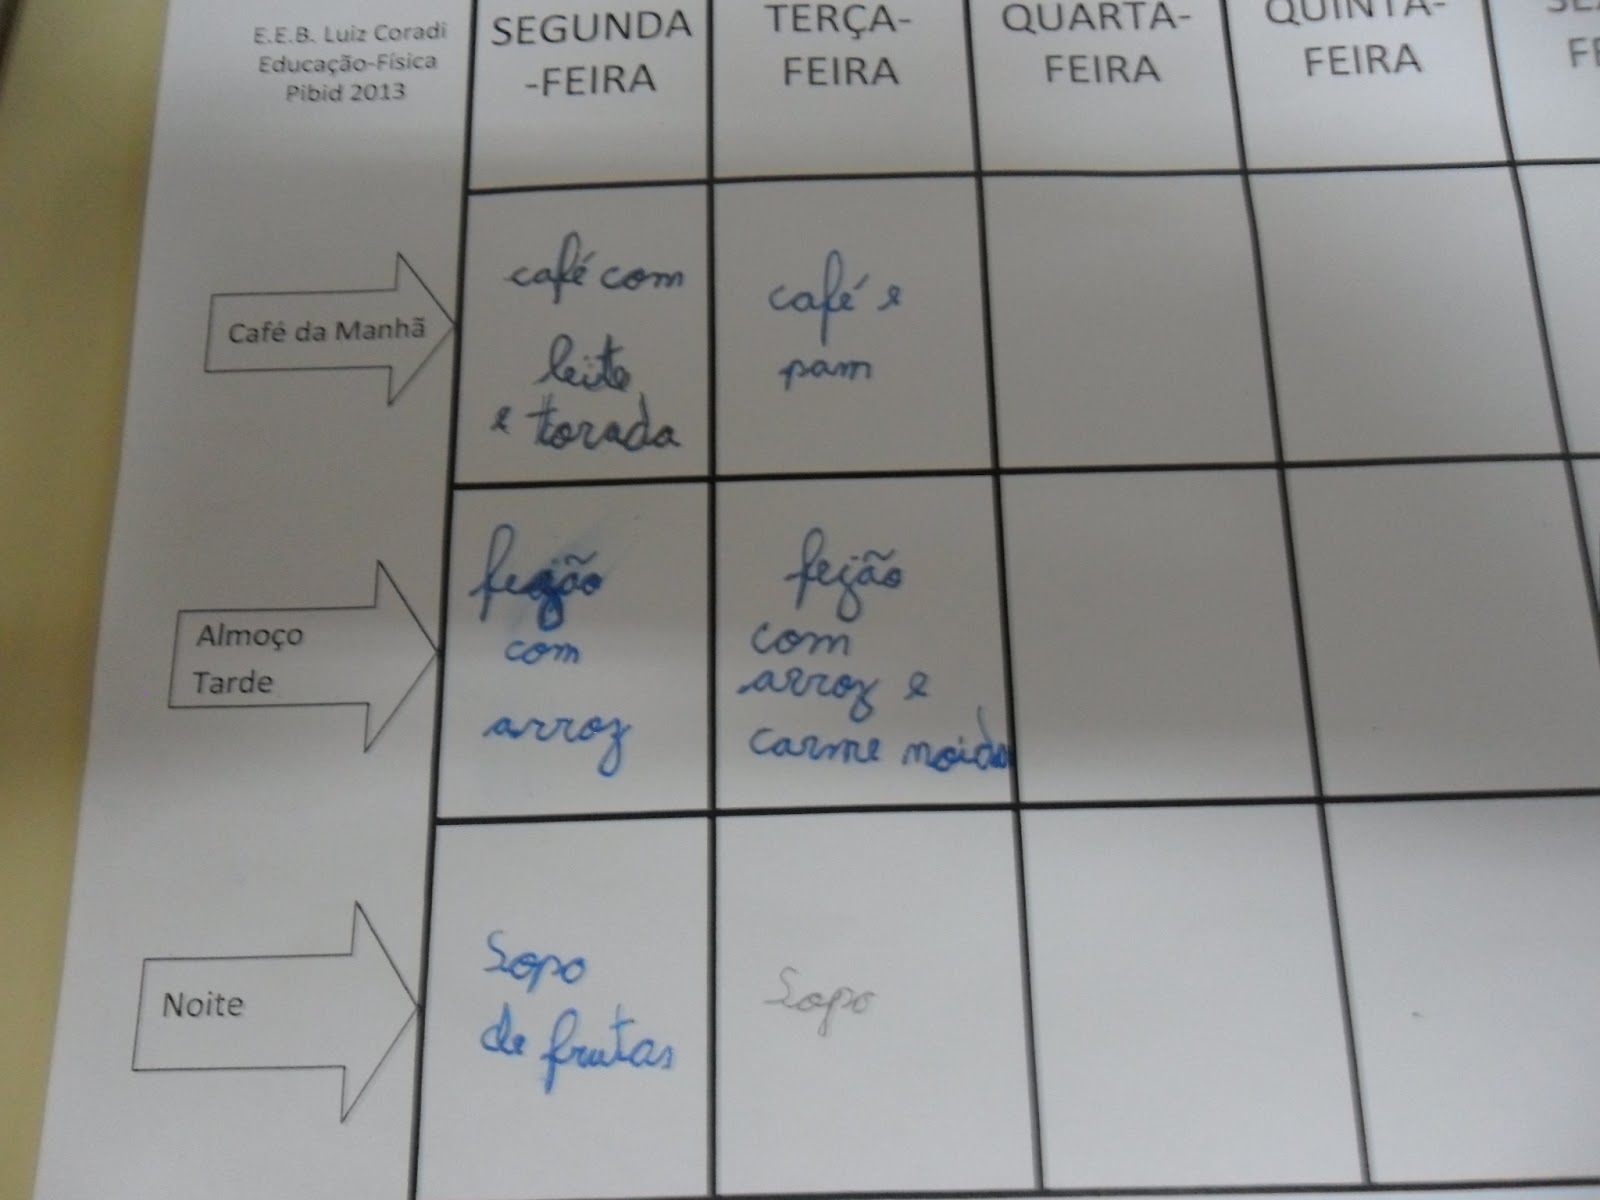 E.E.B. Luiz Coradi
Educação-Física
Pibid 2013
SEGUNDA
-FEIRA
TERÇA-
FEIRA
QUARTA-
FEIRA
QUINTA-
FEIRA
Café da Manhã
café com
leite
e torada
café e
pam
Almoço
Tarde
feijão
com
arroz
feijão
com
arroz e
carme moida
Noite
Sopo
de frutas
Sopo